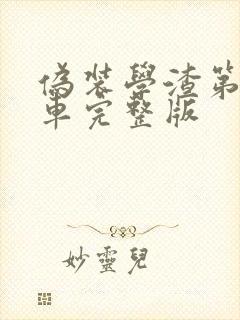 偽装學渣第
車完整版
妙靈兒